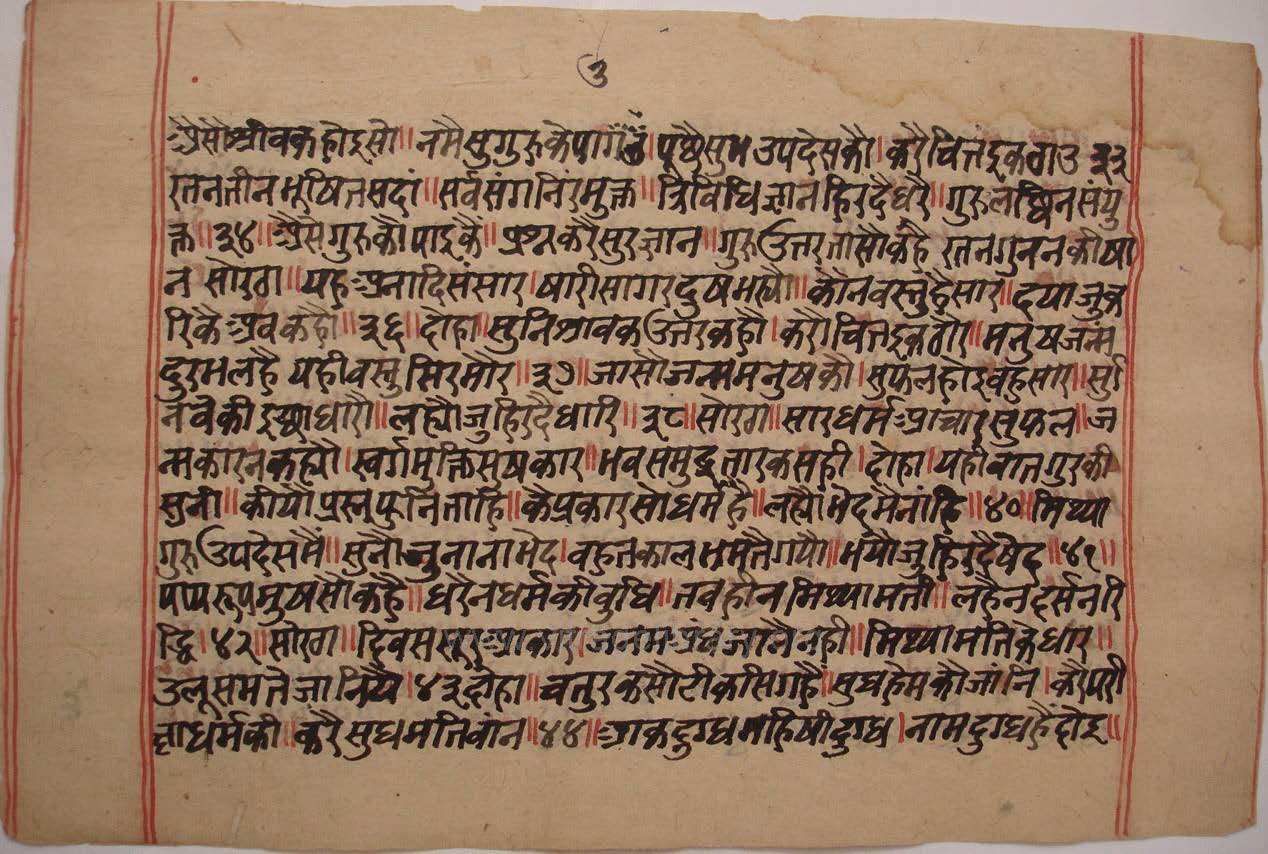 ३
ऐसौ श्रावक होइ सो॥ नमै सुगुरु के पाग॥ पूछै सुभ उपदेस कौ। करै चित्त इक ठाउ ३३
रतन तीन भूषित सदां॥ सर्व संग निरमुक्त॥ त्रिविधि ज्ञान हिरदै धरै॥ गुरु लछिन संयु
क्त॥ ३४॥ ऐसे गुरु कौ पाइ कैं॥ प्रश्न करै सुर ज्ञान॥ गुरु उत्तर तासौ कहै रतन गुनन की षा
न सोरठा॥ यह अनादि संसार। षारी सागर दुष भर्यौ॥ कौन वस्तु है सार॥ दया जु क
रि कै अव कहौ॥ ३६॥ दोहा॥ सुनि श्रावक उत्तर कहौ। करौ चित्त इक ठौर॥ मनुष जन्म
दुरभल है यही वस्तु सिरमौर॥ ३७॥ जासौ जन्म मनुष कौ। सुफल होइ वहु सार॥
लह्यौ जु हिरदै धारि॥ ३८॥ सोरठा॥ सार धर्म आचार सुफल॥ ज
न्म कारन कह्यौ॥ स्वर्ग मुक्ति सुष कार॥ भव समुद्र तारक सही। दोहा॥ यही वात गुर की
सुनी॥ कीयौ प्रस्न पुनि ताहि॥ कै प्रकार सो धर्म है॥ लह्यौ भेद मै नांहि॥ ४०॥ मिथ्या
गुरु उपदेस मैं॥ सुनौ जु नाना भेद। वहुत काल भ्रमतै गयौ॥ भयौ जु हिरदै षेद॥ ४१॥
पाप रूप मुष सौ कहै॥ धरै न धर्म की वुधि॥ तव ही न मिथ्या मती॥ लहै न दर्सन रि
द्धि॥ ४२॥ सोरठा॥ दिवस सूर आकार। जनम अंध जानै नही॥ मिथ्या मति के धार॥
उलू सम ते जानियै॥ ४३ दोहा॥ चतुर कसौटी कसि गहैं॥ सुध हेम कौ जांनि। करै परी
क्षा धर्म की॥ करै सुध मतिवान॥ ४४॥ आक दुग्ध महिषी दुग्ध। नाम दुग्ध है दोइ॥